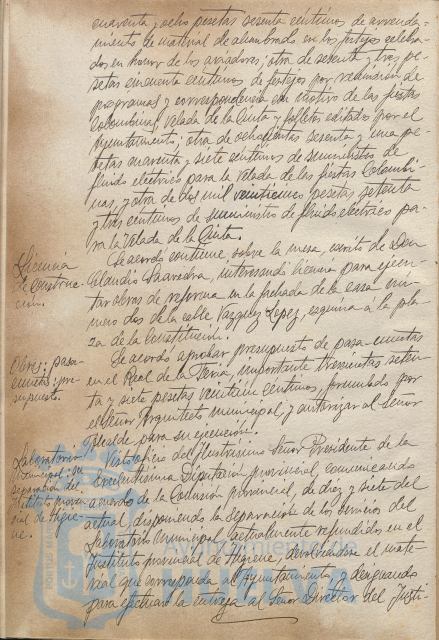 cuarenta y ocho pesetas sesenta centimos de arrenda-
miento de material de alumbrado en los festejos celebra-
dos en honor de los aviadores; otra de setenta y tres pe-
setas cincuenta centimos de festejos por remision de
programas y correspondencia con motivo de las fiestas
Colombinas, Velada de la Cinta y folletos editados por el
Ayuntamiento; otra de ochocientas sesenta y una pe-
setas cuarenta y siete centimos de suministros de
fluido electrico para la Velada de las fiestas Colombi-
nas, y otra de dos mil veinticinco pesetas setenta
y tres centimos de suministro de fluido electrico pa-
ra la Velada de la Cinta.
Licencia
de construc-
cion.
Se acordó continue sobre la mesa, escrito de Don
Claudio Saavedra, interesando licencia para ejecu-
tar obras de reforma en la fachada de la casa nú-
mero dos de la calle Vazquez Lopez, esquina á la pla-
za de la Constitución.
Obras: pasa-
cunetas: pre-
supuesto.
Se acordó aprobar presupuesto de pasa-cunetas
en el Real de la Feria, importante trescientas seten-
ta y siete pesetas veintiun centimos, formulado por
el Señor Arquitecto municipal, y autorizar al Señor
Alcalde para su ejecución.
Laboratorio
municipal: su
separación del
Instituto provin-
cial de Higie-
ne.
Visto oficio del Ilustrisimo Señor Presidente de la
Excelentisima Diputación provincial, comunicando
acuerdo de la Comisión provincial, de diez y siete del
actual, disponiendo la separación de los servicios del
Laboratorio Municipal, actualmente refundidos en el
Instituto provincial de Higiene, devolviendose el mate-
rial que corresponda al Ayuntamiento, y designando
para efectuar la entrega al Señor Director del Insti-
Ayuntamiento de
HUELVA